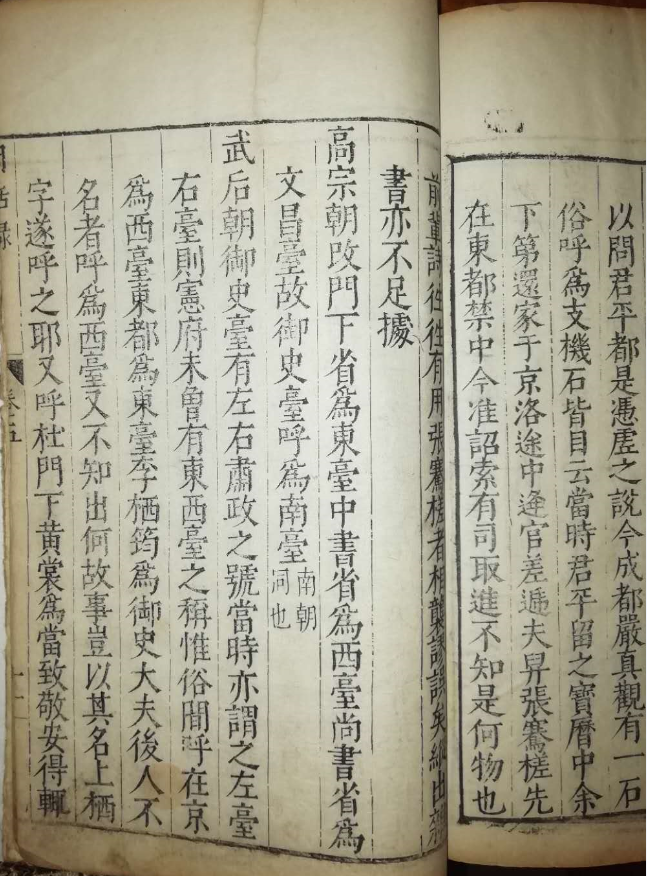 以問君平都是憑虛之說今成都嚴真觀有一石
俗呼爲支機石皆目云當時君平留之寶曆中余
下第還家于京洛途中逢官差遞夫舁張騫槎先
在東都禁中今准詔索有司取進不知是何物也
前輩詩往往有用張騫槎者相襲謬誤矣縱出雜
書亦不足據
高宗朝改門下省爲東臺中書省爲西臺尚書省爲
文昌臺故御史臺呼爲南臺南朝
同也
武后朝御史臺有左右肅政之號當時亦謂之左臺
右臺則憲府未曾有東西臺之稱惟俗間呼在京
爲西臺東都爲東臺李栖筠爲御史大夫後人不
名者呼爲西臺又不知出何故事豈以其名上栖
字遂呼之耶又呼杜門下黃裳爲當致敬安得輒
因話錄
卷五